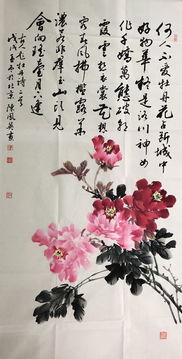 何人不爱牡丹花占断城中
好物华疑是洛川神女
作千娇万态破朝
霞云想衣裳花想
容春风拂槛露华
浓若非群玉山头见
会向瑶台月下逢
古人咏牡丹诗二首
戊戌夏于北京陈凤英